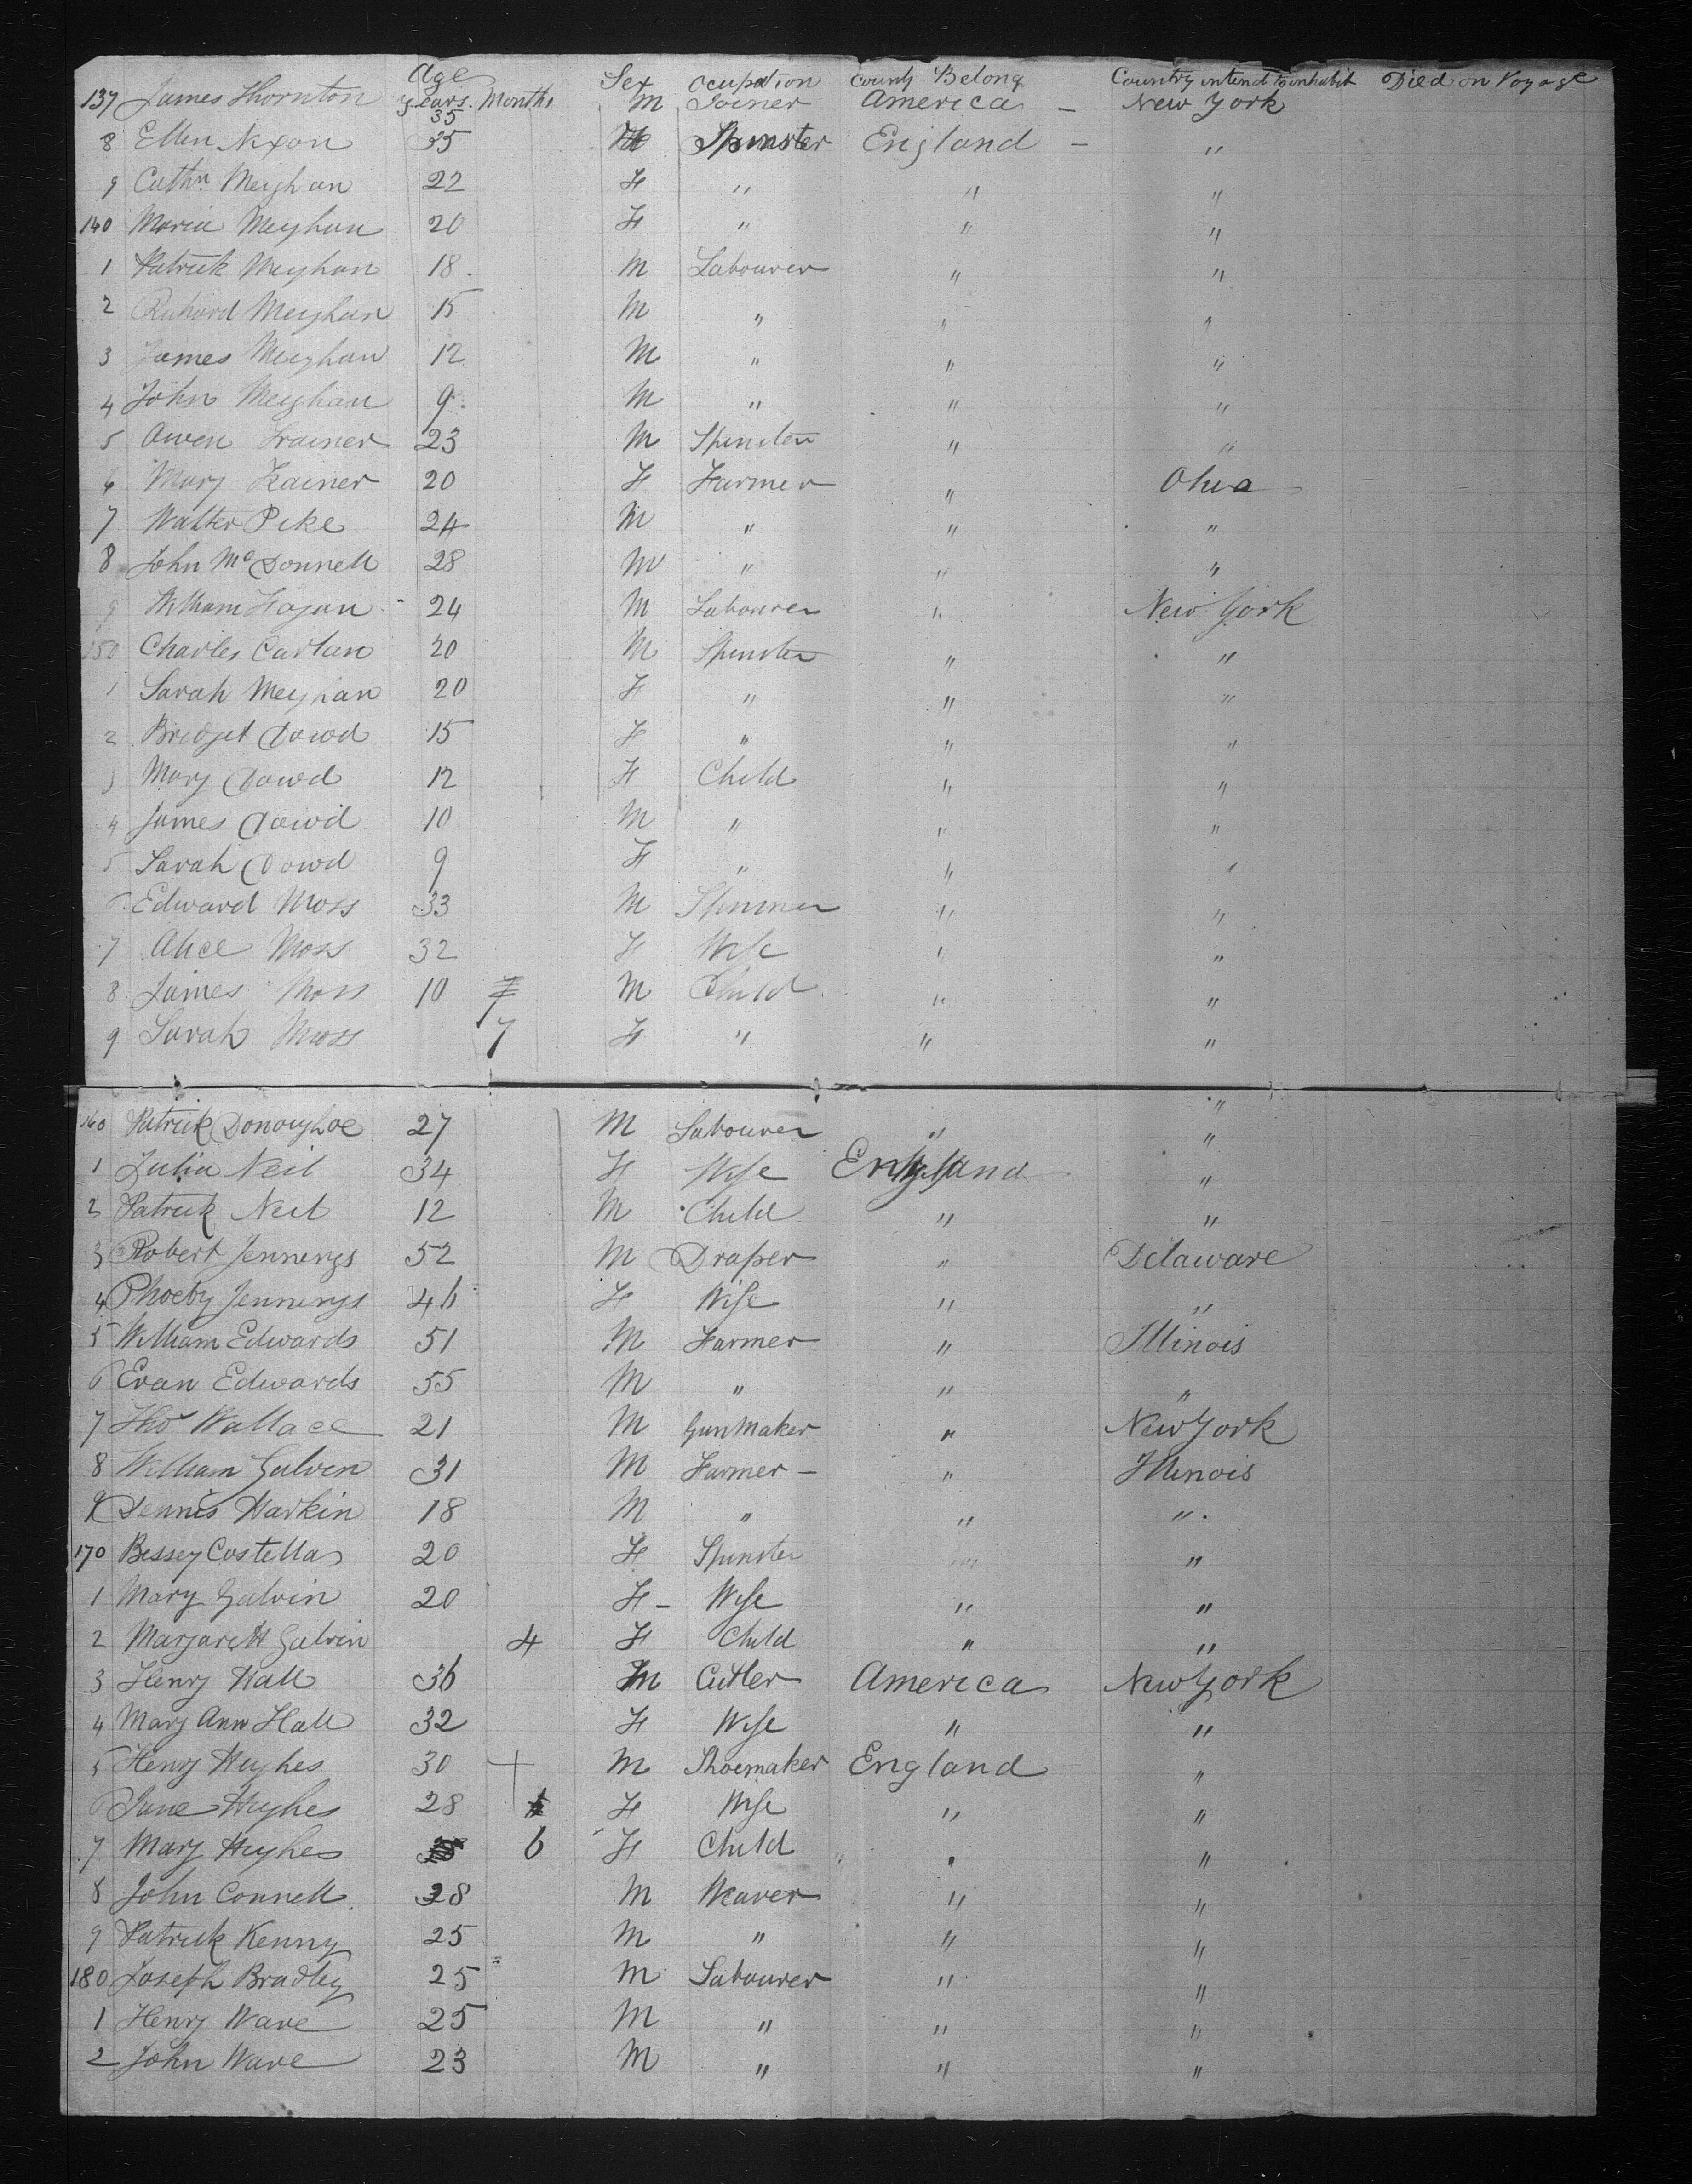 Age Sex Ocupation County Belong Country intend to inhabit Died on Voyage
Years. Months
137 James Thornton 35 M Joiner America - New York
8 Ellen Nixon 35 Spinster England - "
9 Cathn Meighan 22 F " " "
140 Maria Meyhan 20 F " " "
1 Patrick Meyhan 18. M Labourer " "
2 Richard Meyhan 15 M " " "
3 James Meyhan 12 M " " "
4 John Meyhan 9. M " " "
5 Owen Trainer 23 M Spinster " "
6 Mary Trainer 20 F Farmer " Ohio
7 Walter Pike 24 M " " "
8 John McDonnell 28 M " " "
9 William Hagan 24 M Labourer " New York
150 Charles Carlan 20 M Spinster " "
1 Sarah Meyhan 20 F " " "
2 Bridget Dowd 15 F " " "
3 Mary Dowd 12 F Child " "
4 James Dowd 10 M " " "
5 Sarah Dowd 9 F " " "
6 Edward Moss 33 M Spinner " "
7 Alice Moss 32 F Wife " "
8 James Moss 10 M Child " "
9 Sarah Moss 7 F " " "
"
160 Patrick Donoughoe 27 M Labourer " "
1 Julia Neil 34 F Wife England "
2 Patrick Neil 12 M Child " "
3 Robert Jennings 52 M Draper " Delaware
4 Phoeby Jennings 46 F Wife " "
5 William Edwards 51 M Farmer " Illinois
6 Evan Edwards 55 M " " "
7 Thos Wallace 21 M Gun Maker " New York
8 William Galven 31 M Farmer - " Illinois
9 Dennis Harkin 18 M " " "
170 Bessey Costella 20 F Spinster " "
1 Mary Galvin 20 F - Wife " "
2 Margarett Galvin 4 F Child " "
3 Henry Hall 36 M Cutler America New York
4 Mary Ann Hall 32 F Wife " "
5 Henry Hughes 30 M Shoemaker England "
6 Jane Hughes 28 F Wife " "
7 Mary Hughes 6 F Child " "
8 John Connell 28 M Weaver " "
9 Patrick Kenny 25 M " " "
180 Joseph Bradley 25 M Labourer " "
1 Henry Ware 25 M " " "
2 John Ware 23 M " " "